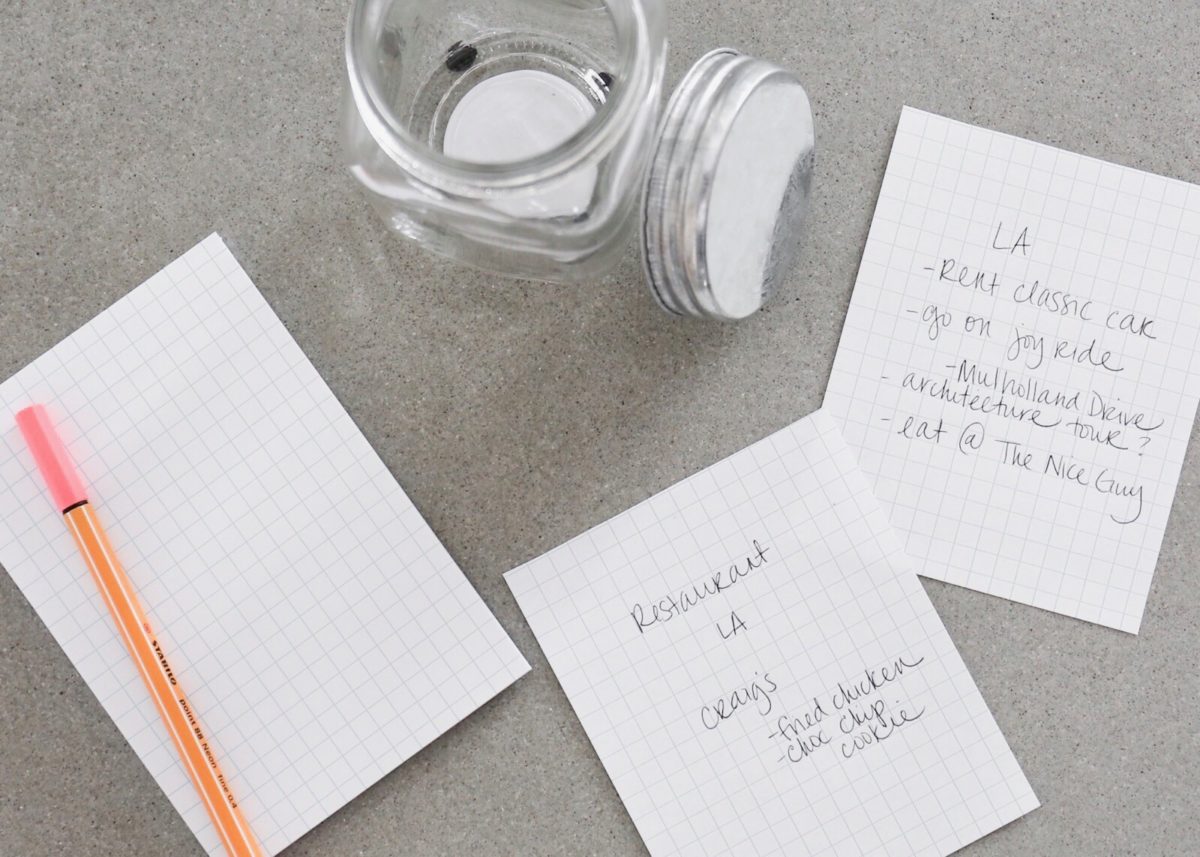 LA
-Rent classic car
-go on joy ride
-Mulholland Drive
- architecture tour?
-eat @ The Nice Guy
Restaurant
LA
Craig's
-fried chicken
-choc chip
cookie
STABILO point 88 Neon fine 0.4